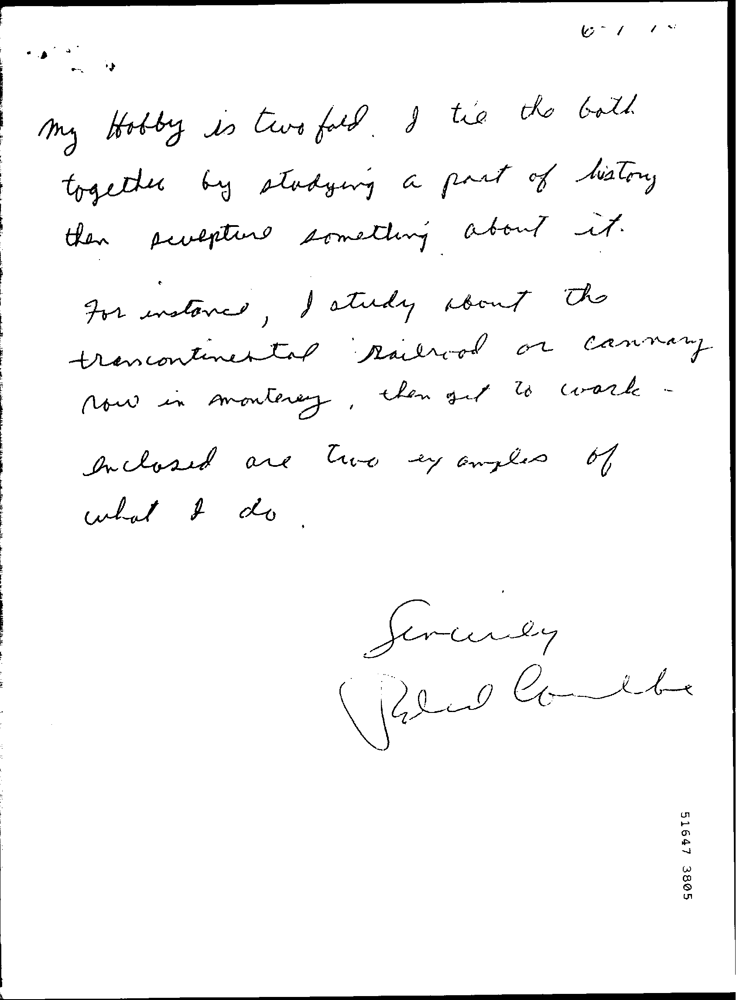 My Hobby is two fold. I tie the both
together by studying a part of history
then sculpture something about it.
For instance, I study about the
transcontinental railroad or cannary
row in monterey, then get to work -
Enclosed are two examples of
what I do.
Sincerely
51647 3805